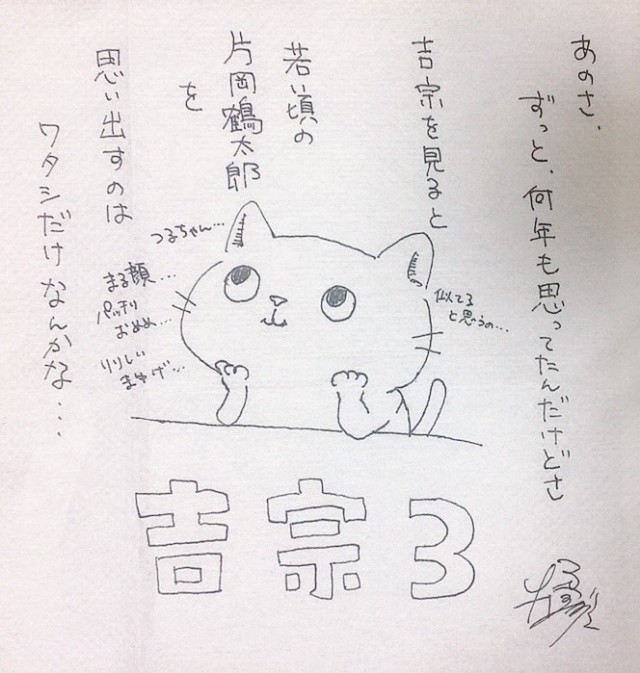 あのさ、
ずっと、何年も思ってたんだけどさ
吉宗を見ると
若い頃の
片岡鶴太郎
を
思い出すのは
ワタシだけなんかな・・・
つるちゃん…
まる顔…
パッチリ
おめめ…
りりしい
まゆげ…
似てる
と思うの…
吉宗3